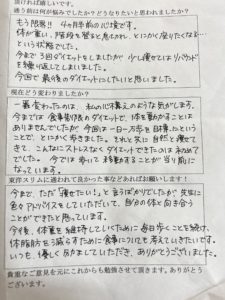 頂ければ嬉しいです。
通う前は何が悩みでしたか？どうなりたいと思われましたか？
もう限界!! 4ヶ月半前の心境です。
体が重い、階段を登ると息もきれ、とにかく座りたくなる…
という状態でした。
今まで3回ダイエットをしましたが 少し痩せてはリバウンド
を繰り返してしまいました。
今回で最後のダイエットにしたいと思いました。
現在どう変わりましたか？
一番変わったのは、私の心構えのような気がします。
今までは食事制限のダイエットで、体を動かすことは
ありませんでしたが 今回は一日一万歩を目標にということで、
とにかく歩きました。それと共に自然と痩せて
きて、こんなにストレスなくダイエットできたのは初めて
でした。今では歩いて移動することが当り前に
なっています。
東洋スリムに通われて良かった事などあればお願いします！
今まで、ただ「痩せたい！」と言うばかりでしたが 先生に
色々アドバイスをしていただいて、自分の体と向き合う
ことができたと思っています。
今後、体重を維持していくために毎日歩くことを続け、
体脂肪を減らすために食事についても考えていきたいです。
いつも優しく励ましていただき、ありがとうございました。
貴重なご意見を元にこれからも勉強させて頂きます。ありがとう
ございます。